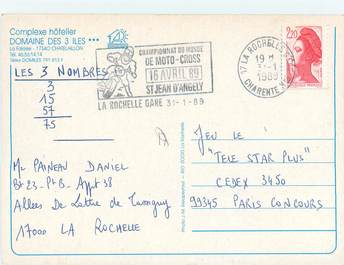 Complexe hôtelier
DOMAINE DES 3 ILES ***
La Falaise - 17340 CHATELAILLON
Tél. 46.56.14.14
LES 3 NOMBRES
3
15
57
75
Mr PAINEAU DANIEL
Bt 23 - Pte B - Appt 38
Allées De Lattre de
17000 LA ROCHELLE
CHAMPIONNAT DU MONDE
DE MOTO-CROSS
16 AVRIL 89
ST JEAN D'ANGELY
LA ROCHELLE GARE 31-1-89
17 LA ROCHELLE
19 H
31-1
1989
CHARENTE
2,20
JEU LE
"TELE STAR PLUS"
CEDEX 3450
99345 PARIS CONCOURS